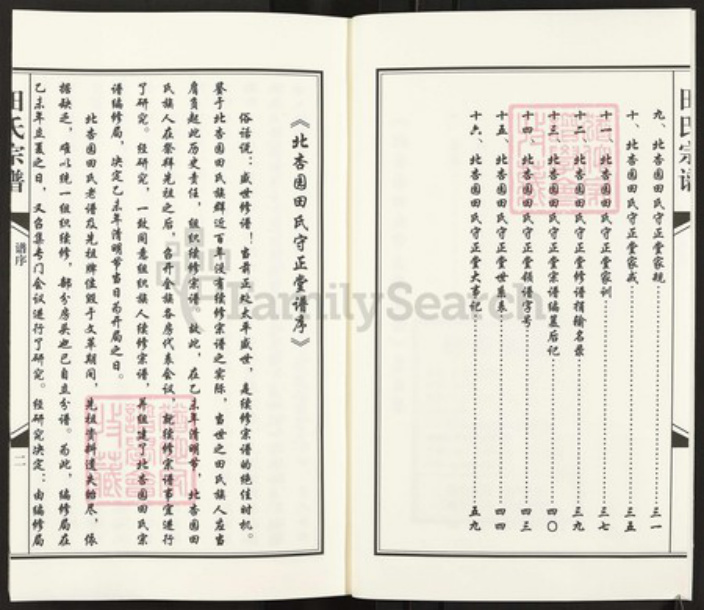 田氏宗谱
九、北杏园田氏守正堂家规……三一
十、北杏园田氏守正堂家戒……三五
十一、北杏园田氏守正堂家训……三七
十二、北杏园田氏守正堂修谱捐输名录……三九
十三、北杏园田氏守正堂宗谱编纂后记……四〇
十四、北杏园田氏守正堂领谱字号……四三
十五、北杏园田氏守正堂世系表……四四
十六、北杏园田氏守正堂大事记……五九
《北杏园田氏守正堂谱序》
俗话说：盛世修谱！当前正处太平盛世，是续修宗谱的绝佳时机。
鉴于北杏园田氏族群近百年没有续修宗谱之实际，当世之田氏族人应当
肩负起此历史责任，组织续修宗谱。故此，在乙未年清明节，北杏园田
氏族人在祭拜先祖之后，召开全族各房代表会议，就续修宗谱事宜进行
了研究。经研究，一致同意组织族人续修宗谱，并组建了北杏园田氏宗
谱编修局，决定乙未年清明节当日为开局之日。
北杏园田氏老谱及先祖牌位毁于文革期间，先祖资料遗失殆尽，依
据缺乏，难以统一组织续修，部分房头也已自立分谱。为此，编修局在
乙未年立夏之日，又召集专门会议进行了研究。经研究决定：由编修局
田氏宗谱
谱序
二
FamilySearch